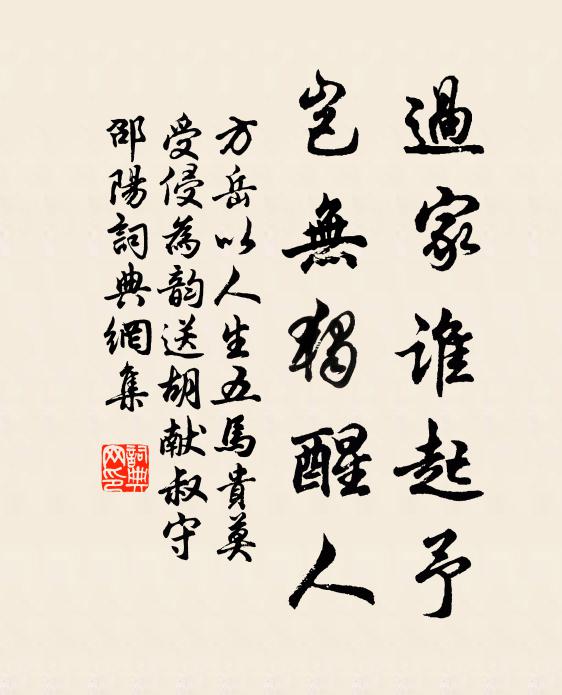 過家誰起予
豈無獨醒人
方岳以人生五馬貴莫
受侵為韵送胡献叔守
邵陽詞典網集
詞典网印